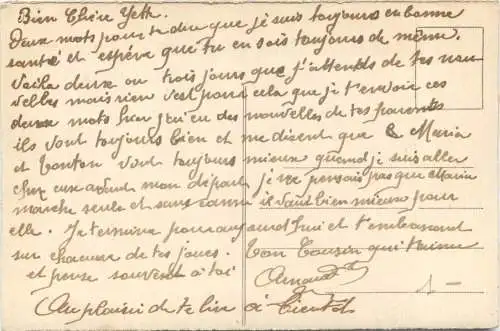 Bien Chère Yette.
Deux mots pour te dire que je suis toujours en bonne
santé et espère que tu en sois toujours de même.
Voila deux ou trois jours que j'attends de tes nou
velles mais rien c'est pour cela que je t'envoie ces
deux mots hier j'ai eu des nouvelles de tes parents
ils vont toujours bien et me disent que Maria
et tonton vont toujours mieux quand je suis aller
chez eux avant mon départ je ne pensais pas que
marche seule et sans canne il vaut bien mieux pour
elle. Je termine pour aujourd'hui et t'embrassant
sur chacune de tes joues. Ton Cousin qui t'aime
et pense souvent à toi
Arnaud
Au plaisir de te lire à Bientôt
1 —